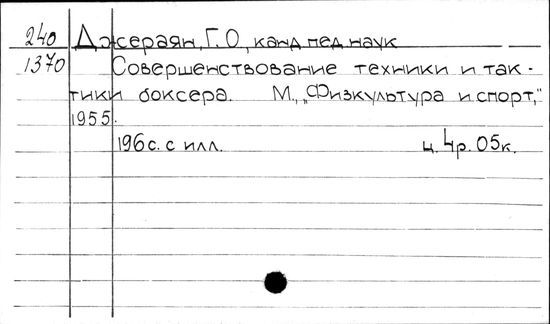 240 Джераян, Г.О., канд пед наук
1370 Совершенствование техники и так-
тики боксера. М., „Физкультура и спорт,"
1955.
196 с. с илл. ц. 4р. 05к.